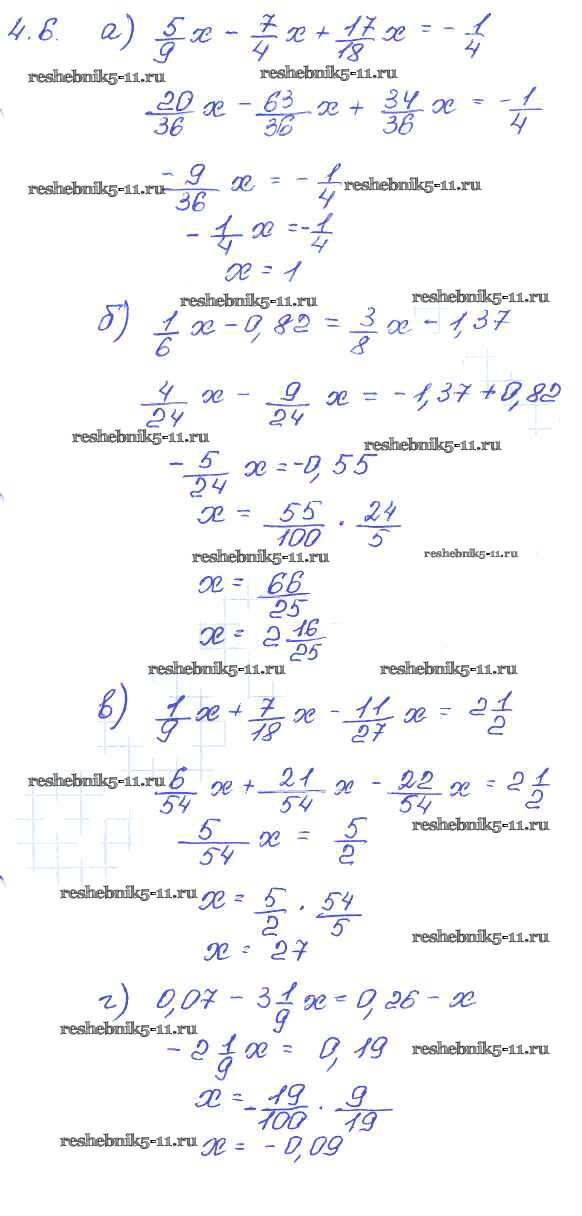 4.6. а) 5/9 x - 7/4 x + 17/18 x = - 1/4
reshebnik5-11.ru reshebnik5-11.ru
20/36 x - 63/36 x + 34/36 x = - 1/4
reshebnik5-11.ru -9/36 x = - 1/4 reshebnik5-11.ru
- 1/4 x = - 1/4
x = 1
reshebnik5-11.ru reshebnik5-11.ru
б) 1/6 x - 0,82 = 3/8 x - 1,37
4/24 x - 9/24 x = - 1,37 + 0,82
reshebnik5-11.ru reshebnik5-11.ru
- 5/24 x = -0,55
x = 55/100 · 24/5
reshebnik5-11.ru reshebnik5-11.ru
x = 66/25
x = 2 16/25
reshebnik5-11.ru reshebnik5-11.ru
в) 1/9 x + 7/18 x - 11/27 x = 2 1/2
reshebnik5-11.ru 6/54 x + 21/54 x - 22/54 x = 2 1/2
5/54 x = 5/2 reshebnik5-11.ru
reshebnik5-11.ru x = 5/2 · 54/5
x = 27 reshebnik5-11.ru
г) 0,07 - 3 1/9 x = 0,26 - x
reshebnik5-11.ru - 2 1/9 x = 0,19 reshebnik5-11.ru
x = - 19/100 · 9/19
reshebnik5-11.ru x = - 0,09